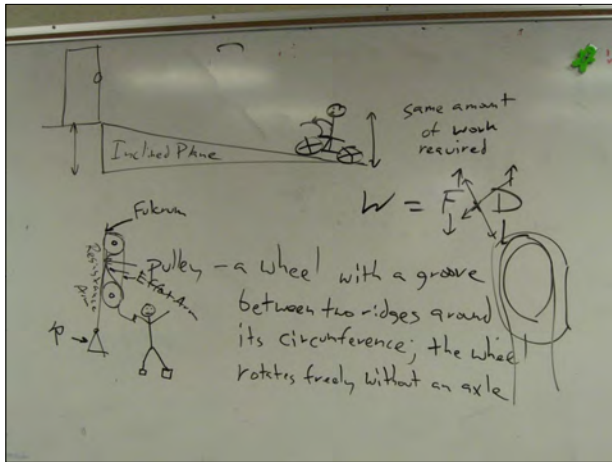 same amount
of work
required
Inclined Plane
W = F × D
Fulcrum
Resistance
Arm
Effort Arm
pulley – a wheel with a groove
between two ridges around
its circumference; the wheel
rotates freely without an axle